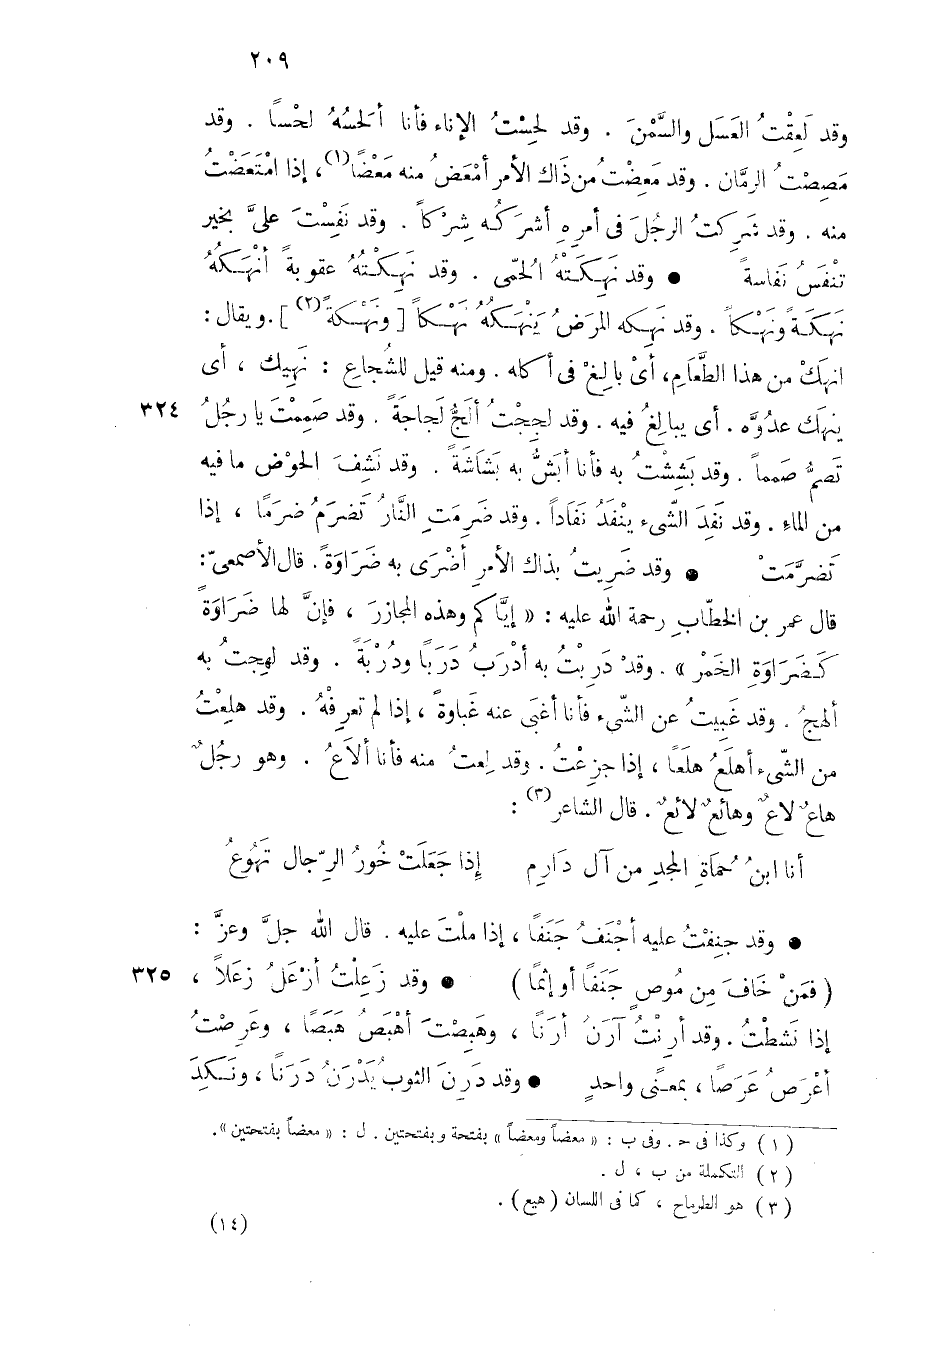 ٢٠٩
وقد لَعِقْتُ العَسَل والسَّمْنَ . وقد لحِسْتُ الإناء فأنا ألحَسُهُ لحْساً . وقد
مَصِصْتُ الرمَّان . وقد مَعِضْتُ من ذَاك الأمر أمْعَضُ منه مَعْضًا(١)، إذا امْتَعَضْتُ
منه . وقد شَرِكتُ الرجُلَ فى أمرِهِ أشرَكُه شِرْكاً . وقد نَفِسْتَ علىَّ بخير
تنْفَسُ نَفاسةً ● وقد نَهِكَتْهُ الحُمّى . وقد نَهِكْتُهُ عقوبةً أنْهَكهُ
نَهكَةً ونَهْكاً . وقد نَهِكه المرَضُ يَنْهَكُهُ نَهْكاً [ ونَهْكَةً(٢) ]. ويقال :
انهَكْ من هذا الطَّعَامِ، أىْ بالِغْ فى أكله . ومنه قيل للشُجاعِ : نَهِيك ، أى
ينهَك عدُوَّه . أى يبالِغُ فيه . وقد لجِجْتُ ألَجُّ لَجاجَةً . وقد صَمِمْتَ يا رجُلُ ٣٢٤
تَصَمُّ صَمماً . وقد بَشِشْتُ به فأنا أبَشُّ به بَشَاشَةً . وقد نَشِفَ الحوْض ما فيه
من الماءِ . وقد نَفِدَ الشَّىء ينْفَدُ نَفَاداً . وقد ضَرِمَتِ النَّارُ تَضرَمُ ضرَمًا ، إذا
تَضرَّمَتْ ● وقد ضَرِيتُ بذاك الأمرِ أضْرَى به ضَرَاوَةً . قال الأصمعىّ :
قال عمر بن الخطّابِ رحمة الله عليه : « إيَّاكم وهذه المجازرَ ، فإنَّ لها ضَرَاوَةً
كَضَرَاوَةِ الخَمْر » . وقدْ دَرِبْتُ به أدْرَبُ دَرَبًا ودُرْبَةً . وقد لهِجتُ به
ألهجُ . وقد غَبِيتُ عن الشّىء فأنا أغبَى عنه غَباوةً ، إذا لم تعرِفْهُ . وقد هلِعْتُ
من الشّىء أهلَعُ هلَعًا ، إذا جزِعْتُ . وقد لِعتُ منه فأنا ألاَعُ . وهو رجُلٌ
هاعٌ لاعٌ وهائعٌ لائعٌ . قال الشاعر(٣) :
أنا ابنُ حُماَةِ المجدِ من آل دَارِم إذا جَعَلَتْ خُورُ الرّجال تَهُوعُ
● وقد جنِفْتُ عليه أجْنَفُ جَنَفًا ، إذا ملْتَ عليه . قال الله جلَّ وعزَّ :
( فمَنْ خَافَ مِن مُوصٍ جَنَفًا أو إثمًا ) ● وقد زَعِلْتُ أزْعَلُ زعَلاً ، ٣٢٥
إذا نَشطْتُ . وقد أرِنْتُ آرَنُ أرَنًا ، وهَبِصْتَ أهْبَصُ هَبَصًا ، وعَرِصْتُ
أعْرَصُ عَرَصًا ، بمعنًى واحدٍ ● وقد دَرِنَ الثوبُ يَدْرَنُ دَرَنًا ، ونَكِدَ
(١) وكذا فى ح . وفى ب : « معضاً ومعضاً » بفتحة وبفتحتين . ل : « معضاً بفتحتين ».
(٢) التكملة من ب ، ل .
(٣) هو الطرماح ، كما فى اللسان ( هيع ) .
(١٤)